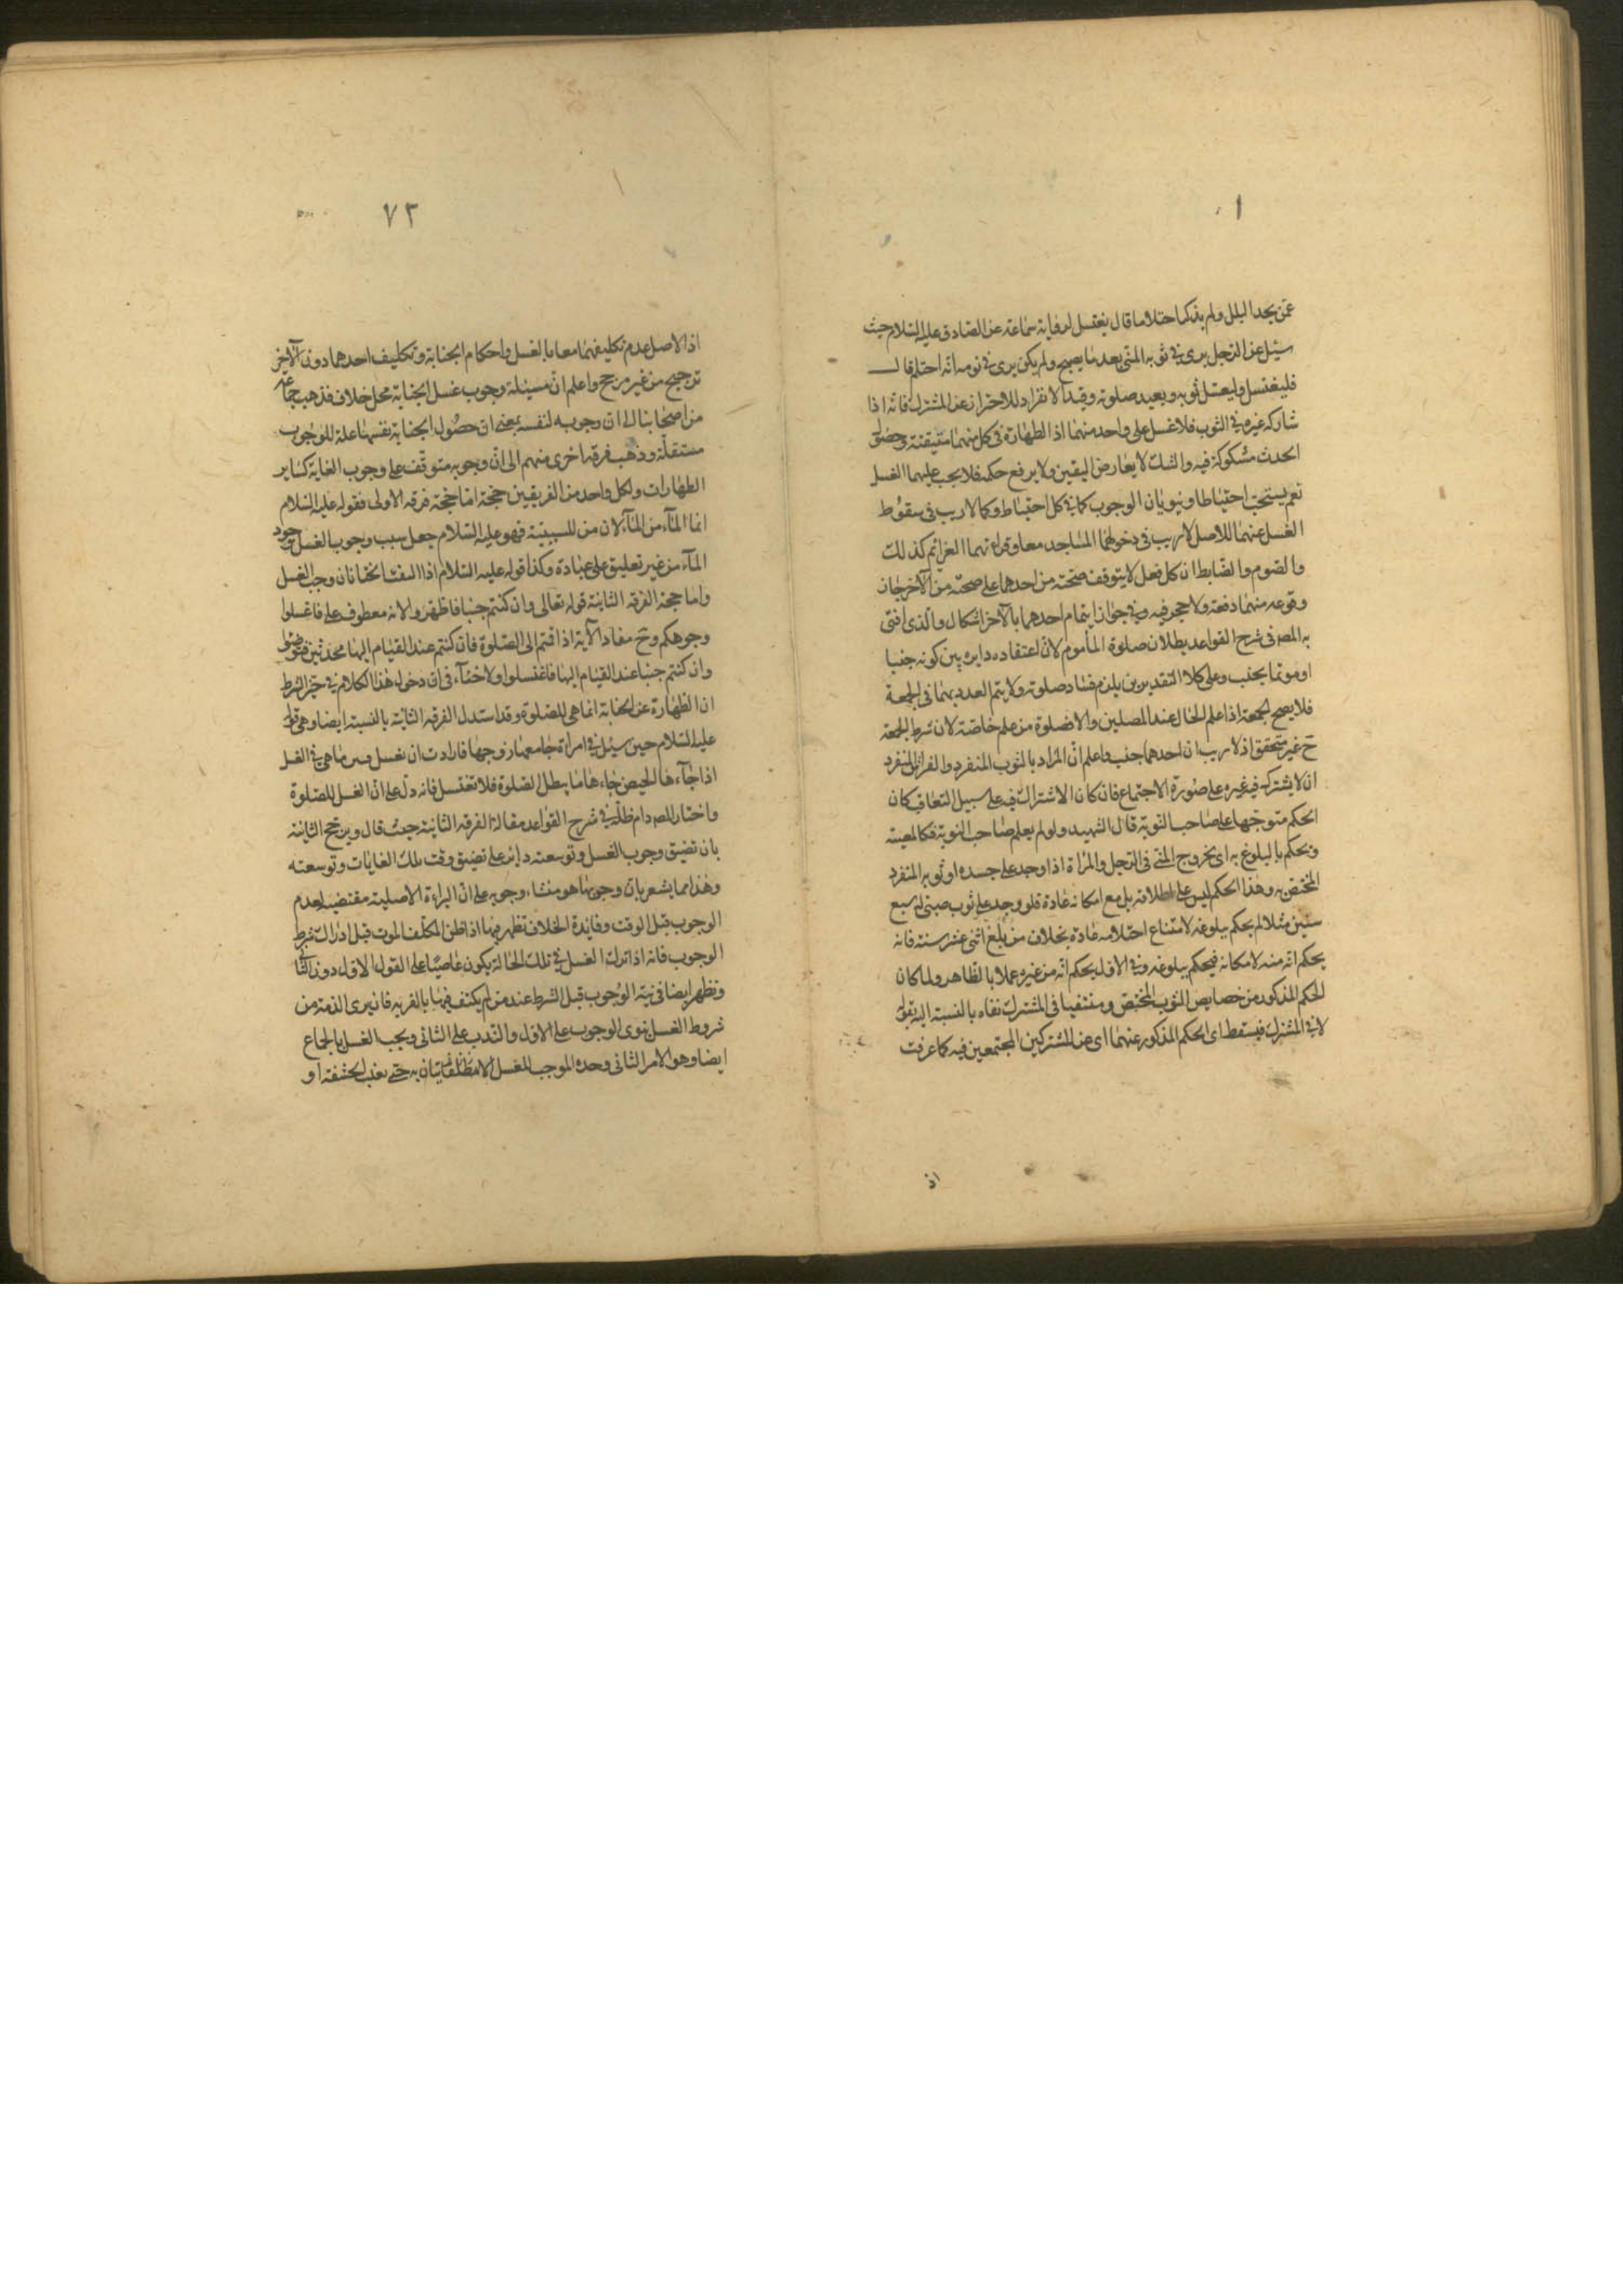 عمّن يجد البلل ولم يذكر احتلاما قال يغتسل لرواية سماعة عن الصادق عليه السلام حيث
سئل عن الرجل يرى في ثوبه المنى بعد ما يصبح ولم يكن يرى في نومه انّه احتلم قال
فليغتسل وليغسل ثوبه ويعيد صلوته وقيد الانفراد للاحتراز عن المشترك فانه اذا
شاركه غيره في الثوب فلا غسل على واحد منهما اذ الطهارة في كل منهما متيقنة وحصول
الحدث مشكوكة فيه والشك لا يعارض اليقين ولا يرفع حكمه فلا يجب عليهما الغسل
نعم يستحب احتياطا وينويان الوجوب كما في كل احتياط وكما لا ريب في سقوط
الغسل عنهما للاصل لا ريب في دخولهما المساجد معا وقراءتهما العزائم كذلك
والصوم والضابط ان كل فعل لا يتوقف صحته من احدهما على صحته من الآخر جاز
وقوعه منهما دفعة ولا حجر فيه وفي جواز ايتمام احدهما بالآخر اشكال والذى افتى
به المصـ في شرح القواعد بطلان صلوة المأموم لانّ اعتقاده دايره بين كونه جنبا
او مؤتما بجنب وعلى كلا التقديرين يلزم فساد صلوته ولا يتم العدد بهما في الجمعة
فلا يصح الجمعة اذا علم الحال عند المصلين والا فصلوة من علم خاصة لان شرط الجمعة
ح غير متحقق اذ لا ريب ان احدهما جنب واعلم انّ المراد بالثوب المنفرد والفراش المنفرد
ان لا يشترك فيه غيره على صورة الاجتماع فان كان الاشتراك فيه على سبيل التعاقب كان
الحكم متوجها على صاحب النوبة قال الشهيد ولو لم يعلم صاحب النوبة فكالمعية
ويحكم بالبلوغ به اى بخروج المنى في الرجل والمرأة اذا وجد على جسده او ثوبه المنفرد
المختص به وهذا الحكم ليس على اطلاقه بل مع امكانه عادة فلو وجد على ثوب صبىّ له سبع
سنين مثلا لم يحكم ببلوغه لامتناع احتلامه عادة بخلاف من بلغ اثنى عشر سنة فانه
يحكم انّه منه لامكانه فيحكم ببلوغه وفي الاول يحكم انّه من غيره عملا بالظاهر ولما كان
الحكم المذكور من خصايص الثوب المختص ومنتفيا في المشترك نفاه بالنسبة اليه بقوله
لا في المشترك فيسقط اى الحكم المذكور عنهما اى عن المشتركين المجتمعين فيه كما عرفت
اذ
٧٣
اذ الاصل عدم تكليفهما معا بالغسل واحكام الجنابة وتكليف احدهما دون الآخر
ترجيح من غير مرجح واعلم انّ مسئلة وجوب غسل الجنابة محل خلاف فذهب جماعة
من اصحابنا الى ان وجوبه لنفسه بمعنى انّ حصول الجنابة بنفسها علة للوجوب
مستقلة وذهب فرقة اخرى منهم الى انّ وجوبه متوقّف على وجوب الغاية كساير
الطهارات ولكل واحد من الفريقين حجة امّا حجة فرقة الاولى فقوله عليه السلام
انما المآء من المآء لان من للسببية فهو عليه السلام جعل سبب وجوب الغسل وجود
المآء من غير تعليق على عبادة وكذا قوله عليه السلام اذا التقى الختانان وجب الغسل
واما حجة الفرقة الثانية قوله تعالى وان كنتم جنبا فاطهروا لانه معطوف على فاغسلوا
وجوهكم وح مفاد الآية اذا قمتم الى الصلوة فان كنتم عند القيام اليها محدثين فتوضئوا
وان كنتم جنبا عند القيام اليها فاغتسلوا ولا خفآء في ان دخول هذا الكلام في حيّز الشرط
ان الطهارة عن الجنابة انما هى للصلوة وقد استدل الفرقة الثانية بالنسبة ايضا وهى قوله
عليه السلام حين سئل في امرأة جامعها زوجها فارادت ان تغتسل وهى في الغسل
اذا جآءها الحيض جاءها ما يبطل الصلوة فلا تغتسل فانه دلّ على انّ الغسل للصلوة
واختار المصـ دام ظلّه في شرح القواعد مقالة الفرقة الثانية حيث قال ويرجّح الثانية
بان تضيق وجوب الغسل وتوسعته داير على تضيق وقت تلك الغايات وتوسعته
وهذا مما يشعر بان وجوبها هو منشاء وجوبه على انّ البراءة الاصلية مقتضية لعدم
الوجوب قبل الوقت وفائدة الخلاف تظهر فيما اذا ظن المكلّف الموت قبل ادراك شرط
الوجوب فانه اذا ترك الغسل في تلك الحالة يكون عاصيا على القول الاول دون الثانى
وتظهر ايضا في نية الوجوب قبل الشرط عند من لم يكتف فيها بالقربة فان يرى الذمة من
شروط الغسل ينوى الوجوب على الاول والندب على الثانى ويجب الغسل بالجماع
ايضا وهو الامر الثانى وحده الموجب للغسل حتى يغيب الحشفة او